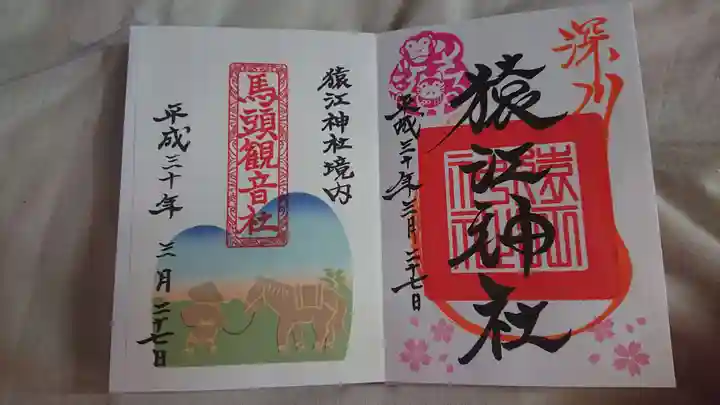 深川
猿江神社
平成三十年三月二十七日
猿江神社
猿江神社境内
馬頭観音社
平成三十年三月二十七日